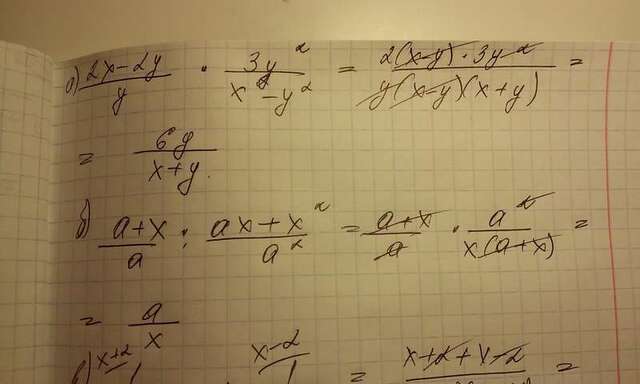 а) (2x-2y)/y · 3y²/(x²-y²) = (2(x-y)·3y²)/(y(x-y)(x+y)) =
= 6y/(x+y).
б) (a+x)/a : (ax+x²)/a² = (a+x)/a · a²/(x(a+x)) =
= a/x
в) x+2 x-2 = x+2+x-2 =